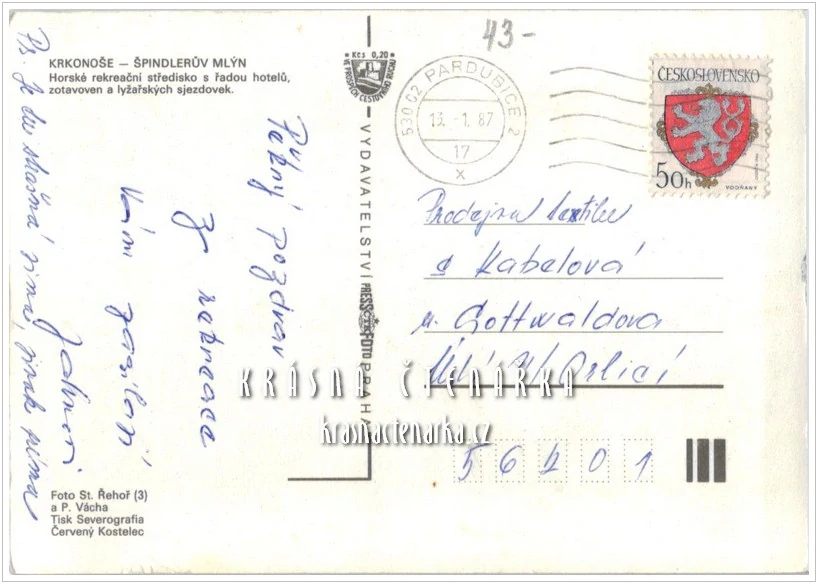 43-
KRKONOŠE — ŠPINDLERŮV MLÝN
Horské rekreační středisko s řadou hotelů,
zotavoven a lyžařských sjezdovek.
Kčs 0,20
VE PROSPĚCH CESTOVNÍHO RUCHU
VYDAVATELSTVÍ PRESSFOTO PRAHA
530 02 PARDUBICE 2
13. -1. 87
17
x
ČESKOSLOVENSKO
50h
VODŇANY
Pěkný pozdrav
z rekreace
Vám zasílají
Ps. Je tu strašná zima, jinak prima
Prodejna textilu
s Kabelová
u. Gottwaldova
Ústí n/Orlicí
56201
KRÁSNÁ ČTENÁŘKA
krasnactenarka.cz
Foto St. Řehoř (3)
a P. Vácha
Tisk Severografia
Červený Kostelec